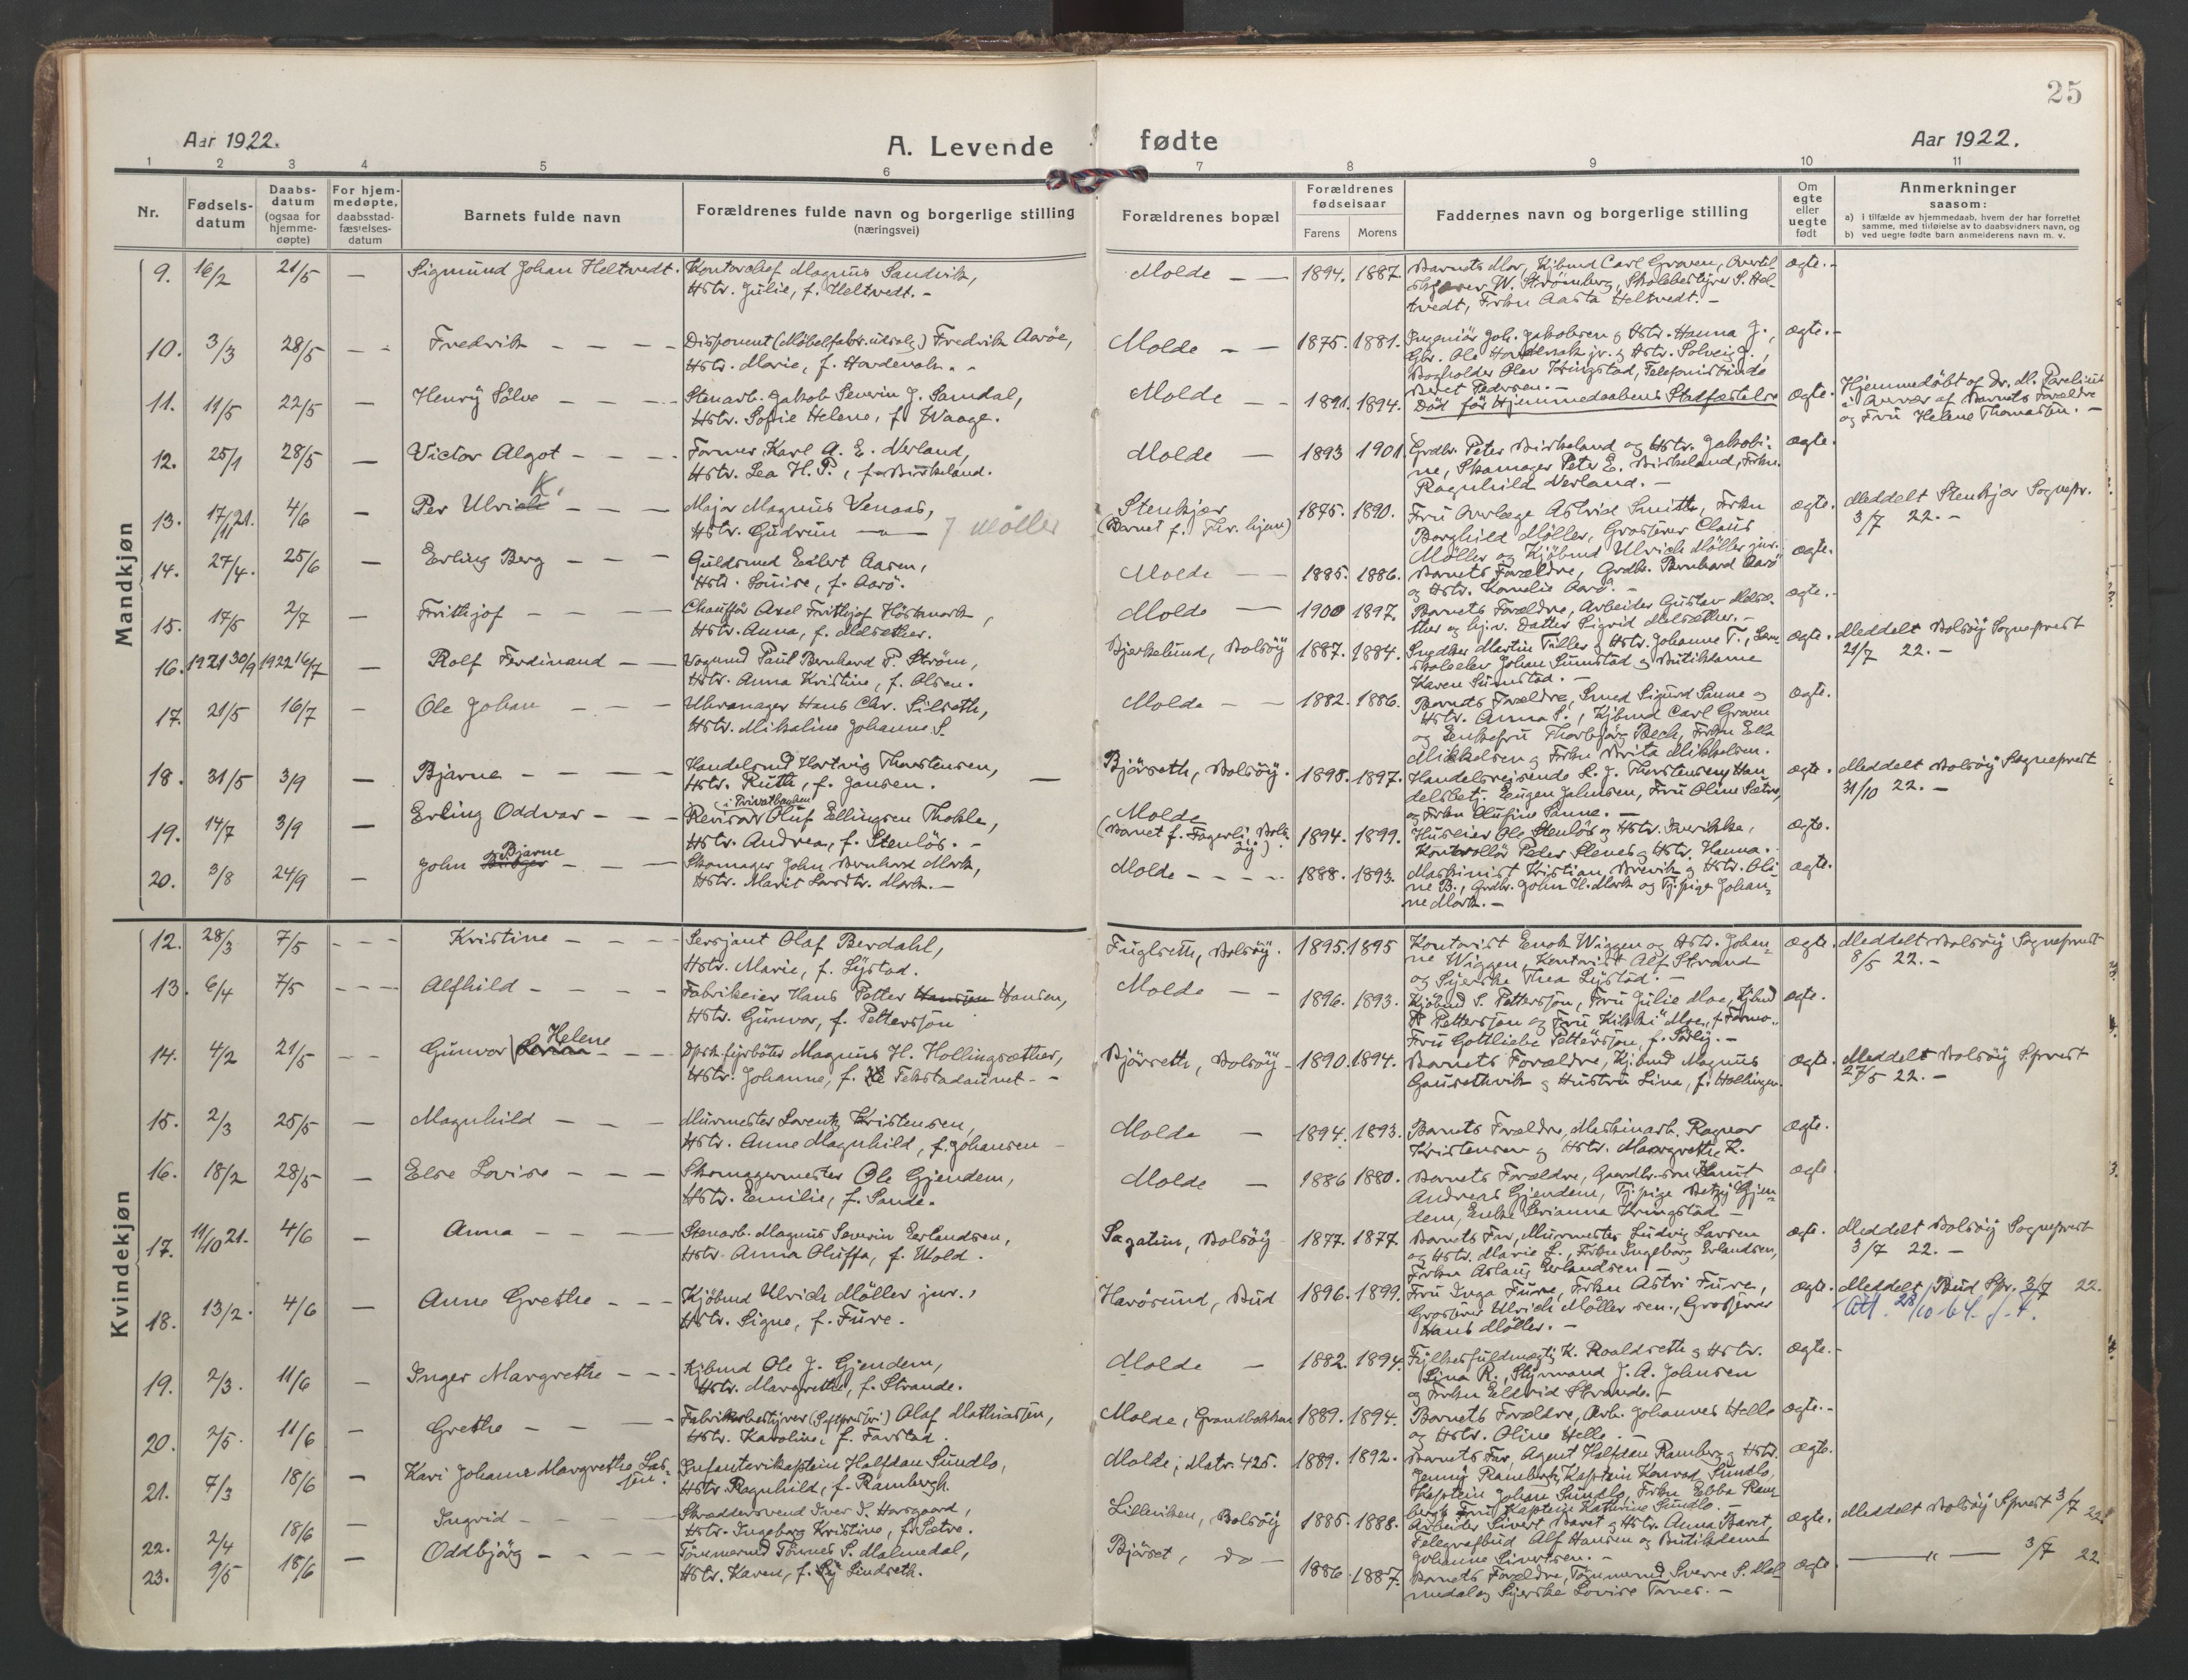 25
Aar 1922.
A. Levende fødte
Aar 1922.
1 2 3 4 5 6 7 8 9 10 11
Nr.
Fødsels-
datum
Daabs-
datum
(ogsaa for
hjemme-
døpte)
For hjem-
medøpte,
daabsstad-
fæstelses-
datum
Barnets fulde navn
Forældrenes fulde navn og borgerlige stilling
(næringsvei)
Forældrenes bopæl
Forældrenes
fødselsaar
Farens Morens
Faddernes navn og borgerlige stilling
Om
egte
eller
uegte
født
Anmerkninger
saasom:
a) i tilfælde av hjemmedaab, hvem der har forrettet
samme, med tilføielse av to daabsvidners navn, og
b) ved uegte fødte barn anmelderens navn m. v.
Mandkjøn
9. 16/2 21/5 — Sigmund Johan Heltvedt. Kontorchef Magnus Sandvik,
Hstr. Julie, f. Heltvedt. -
Molde — 1894. 1887. Barnets Mor, Kjbmd Carl Graven, Overtil-
W. Strømberg, Skolebestyrer S. Hel-
tvedt, Frkn Aasta Heltvedt. -
ægte. -
10. 3/3 28/5 - - Fredrik - - - Disponent (Møbelfabr. utsalg) Fredrik Aarøe,
Hstr. Marie, f. Hardevoln. -
Molde - - 1875. 1881. Ingeniør Joh. Jakobsen & Hstr. Hanna J.,
Gbr. Ole jr. & Hstr. Solveig J.,
Bogholder Olav Kringstad, Telefonistinde
Beret Pedersen. -
ægte. -
11. 11/5 22/5 — Henry Sølve - - - Stenarb. Jakob Severin J. Samdal,
Hstr. Sofie Helene, f. Waage.
Molde - - 1891. 1894. Død før Hjemmedaabens Stadfæstelse ægte.
Hjemmedøbt af Dr. M. Parelius
i Nærvær af Barnets Forældre
og Fru Helene Thomassen. -
12. 25/1 28/5 — Victor Algot - - - Former Karl A. E. Nerland,
Hstr. Lea H. P., f. Birkeland.
Molde - 1893 1901 Grdbr. Peter Birkeland og Hstr. Jakobi-
ne, Skomager Peter E. Birkeland, Frkn.
Ragnhild Nerland. -
ægte.
13. 17/11 21. 4/6 — Per Ulrich K. - - - Major Magnus Venaas,
Hstr. Gudrun —"— f Møller
Stenkjær
(Barnet f. Thr. hjem)
1875. 1890. Fru Overlæge Astrid Smith, Frkn
Borghild Møller, Grosserer Claus
Møller og Kjøbmd Ulrich Møller jnr.
ægte. Meddelt Stenkjær Sognepr.
3/7 22. -
14. 27/4. 25/6 — Erling Berg - - Guldsmed Edbert Aasen,
Hstr. Louise, f. Aarø.
Molde - - 1885. 1886. Barnets Forældre, Grdbr. Bernhard Aarø
og Hstr. Kornelie Aarø. -
ægte.
15. 17/5 2/7 — Frithjof - - - Chauffør Axel Frithjof Höstmark,
Hstr. Anna, f. Melsether.
Molde — 1900 1897. Barnets Forældre, Arbeider Gustav Melsæ-
ther og hj.v. Datter Sigrid Melsæther. -
ægte. -
16. 1921 30/9 1922 16/7 — Rolf Ferdinand - - Vognmd Paul Bernhard P. Strøm,
Hstr. Anna Kristine, f. Olsen.
Bjerkelund, Bolsöy 1887. 1884. Martin Tüller & Hstr. Johanne T.,
Johan Sunnstad & Butikdame
Karen Sunnstad. -
ægte. Meddelt Bolsöy Sogneprest
21/7 22. -
17. 21/5 16/7 - Ole Johan - - - Uhrmager Hans Chr. Silseth,
Hstr. Mikaline Johanne S.
Molde - - 1882. 1886. Barnets Forældre, Smed Sigurd Sanne og
Hstr. Anna S., Kjbmd Carl Graven
og Enkefru Thorbjørg Bech, Frkn Ella
Mikkelsen & Frkn Brita Mikkelsen.
ægte.
18. 31/5 3/9 — Bjarne - - - - Handelsmd Hartvig Thorstensen,
Hstr. Ruth, f. Jansen.
Björseth, Bolsöy. 1898. 1897. Handelsreisende L. J. Thorstensen, Han
delsbetj. Eugen Johnsen, Fru Oline Sætre,
og Frkn Olufine Sanne. -
ægte. Meddelt Bolsöy Sogneprest
31/10 22. -
19. 14/7 3/9 — Erling Oddvar - - - (i Privatbanken)
Revisor Oluf Ellingsen Thokle,
Hstr. Andrea, f. Stenlös. -
Molde
(Barnet f. Fagerli, Bols
öy)
1894. 1899. Huseier Ole Stenlös & Hstr. Sverikke,
Kontrollör Peder Stenes & Hstr. Hanna.
ægte.
20. 3/8 24/9 — John Bjarne - - - Skomager John Bernhard Mork,
Hstr. Marit Larsdtr. Mork. -
Molde - - - - 1888. 1893. Maskinist Kristian Brevik & Hstr. Oli
ne B., Grdbr. John H. Mork og Tj.pige Johan-
ne Mork. -
ægte.
Kvindekjøn
12. 28/3 7/5 - - - Kristine - - - Sersjant Olaf Berdahl,
Hstr. Marie, f. Lystad.
Fuglseth, Bolsöy. 1895. 1895 Kontorist Enok Wiggen og Hstr. Johan-
ne Wiggen, Kontorist Alf Strand
og Syerske Thea Lystad. -
ægte. Meddelt Bolsöy Sogneprest
8/5 22. -
13. 6/4 7/5 - - - Alfhild - - - - Fabrikeier Hans Petter Hansen Hansen,
Hstr. Gunvor, f. Pettersson
Molde - - 1896. 1893. Kjøbmd S. Pettersson, Fru Julie Moe, Kjbmd
Pettersson og Fru Kikki Moe, f.
Fru Gottliebe Pettersson, f. -
ægte.
14. 4/2 21/5 - - Gunvor Helene - - - Dpsk.fyrbøter Magnus H. Hollingsæther,
Hstr. Johanne, f. Tekstadaunet - -
Björseth, Bolsöy - 1890. 1894. Barnets Forældre, Kjbmd Magnus
Gausethvik & Hustru Lina, f. Hollings.
ægte. Meddelt Bolsöy Sprest
27/5 22. -
15. 2/3 25/5 — Magnhild - - - Murmester Lorentz Kristensen,
Hstr. Anne Magnhild, f. Johansen -
Molde - 1894. 1893. Barnets Forældre, Maskinarb. Ragnar
Kristensen & Hstr. Margrethe K.
ægte.
16. 18/2 28/5 — Else Lovise - - - Skomagermester Ole Gjendem,
Hstr. Emilie, f. Sande.
Molde - 1886 1880. Barnets Forældre, Gaardbr.søn Knut
Andreas Gjendem, Tj.pige Betzy Gjen-
dem, Enke Serianna Kringstad -
ægte
17. 11/10 21. 4/6 — Anna - - - Stenarb. Magnus Severin Erlandsen,
Hstr. Anna Oluffa, f. Wold.
Sagatun, Bolsöy 1877. 1877. Barnets Far, Murmester Ludvig Larsen
og Hstr. Marie L., Frkn Ingeborg Erlandsen,
Frkn Aslaug Erlandsen -
ægt. Meddelt Bolsöy Sogneprest
3/7 22. -
18. 13/2. 4/6 — Anne Grethe - - - Kjöbmd Ulrich Möller jnr.,
Hstr. Signe, f. Fure.
Harøsund, Bud 1896. 1899. Fru Inga Fure, Frkn Astri Fure,
Grosserer Ulrich Møller sen., Grosserer
Hans Møller. -
ægte. Meddelt Bud Spr. 3/7 22.
Att. 28/10-64.
19. 2/3. 11/6 — Inger Margrethe - - - Kjbmd Ole J. Gjendem,
Hstr. Margrethe, f. Strande.
Molde - 1882. 1894. Fylkesfuldmægtig K. Roaldseth & Hstr.
Lina R., Styrmand J. A. Johnsen
og Frkn Eldrid Strande. -
ægte. -
20. 2/5. 11/6 — Grethe - - - Fabrikbestyrer Olaf Mathiassen,
Hstr. Karoline, f. Farstad.
Molde, Grandbakken 1889. 1894. Barnets Forældre, Arb. Johannes Helle
og Hstr. Oline Helle. -
ægte. -
21. 7/3 18/6 — Kari Johanne Margrethe Las-
sen. Infanterikaptein Halfdan Sundlo,
Hstr. Ragnhild, f. Rambergh.
Molde, Matr. 425. 1889. 1892. Barnets Far, Agent Halfdan Ramberg & Hstr.
Jenny Rambergh, Kaptein Konrad Sundlo,
Kaptein Johan Sundlo, Frkn Ebba Ram
bergh, Fru Kaptein Kathrine Sundlo. -
ægte.
22. 2/4 18/6 — Ingrid - - - Skraddersvend Iver I. Horsgaard,
Hstr. Ingeborg Kristine, f. Sætre.
Lilleviken, Bolsöy 1885. 1888. Arbeider Sivert Baret & Hstr. Anna Baret,
Telegrafbud Alf Hansen og Butikdame
Johanne Sivertsen. -
ægte. Meddelt Bolsöy Sprest 3/7 22.
23. 9/5 18/6 — Oddbjørg - - - Tømmermd Tønnes S. Malmedal,
Hstr. Karen, f. Lindseth.
Björset, do - 1886. 1887. Barnets Forældre, Tømmermd Sverre S. Mal-
medal og Syerske Lovise Tornes. -
ægte. —"— 3/7 22